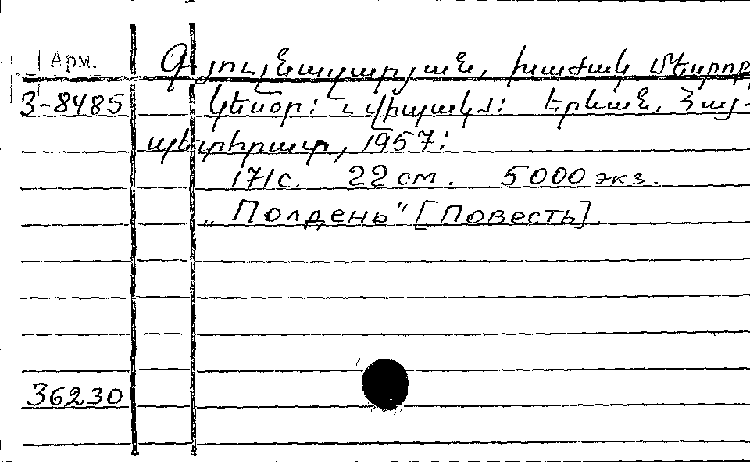 Арм.
Գյուլնազարյան, Խաժակ Մեսրոպ
3-8485
Կեսօր: Վիպակ: Երևան, Հայ-
պետհրատ, 1957:
171с. 22 см. 5000 экз.
„Полдень" [Повесть].
36230